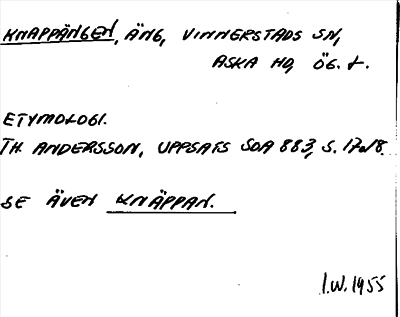 KNAPPÄNGEN, ÄNG, VINNERSTADS SN,
ASKA HD, ÖG. L.
ETYMOLOGI.
TH. ANDERSSON, UPPSATS SOA 883, S. 17 o 18.
SE ÄVEN KNÄPPAN.
I.W. 1955